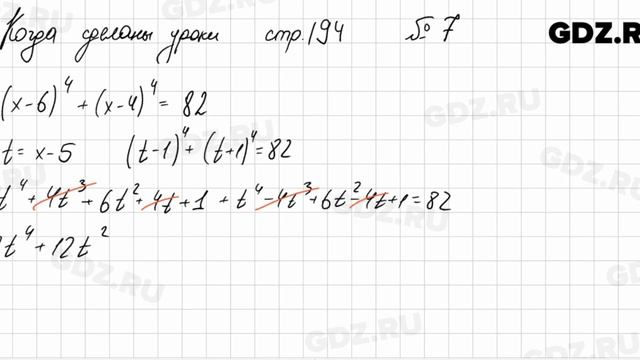 Когда сделаны уроки стр.194 № 7 GDZ.RU
(x-6)⁴ + (x-4)⁴ = 82
t = x-5 (t-1)⁴ + (t+1)⁴ = 82
t⁴ + 4t³ + 6t² + 4t + 1 + t⁴ - 4t³ + 6t² - 4t + 1 = 82
t⁴ + 12t²
GDZ.RU
GDZ.RU
GDZ.RU
GDZ.RU
GDZ.RU
GDZ.RU